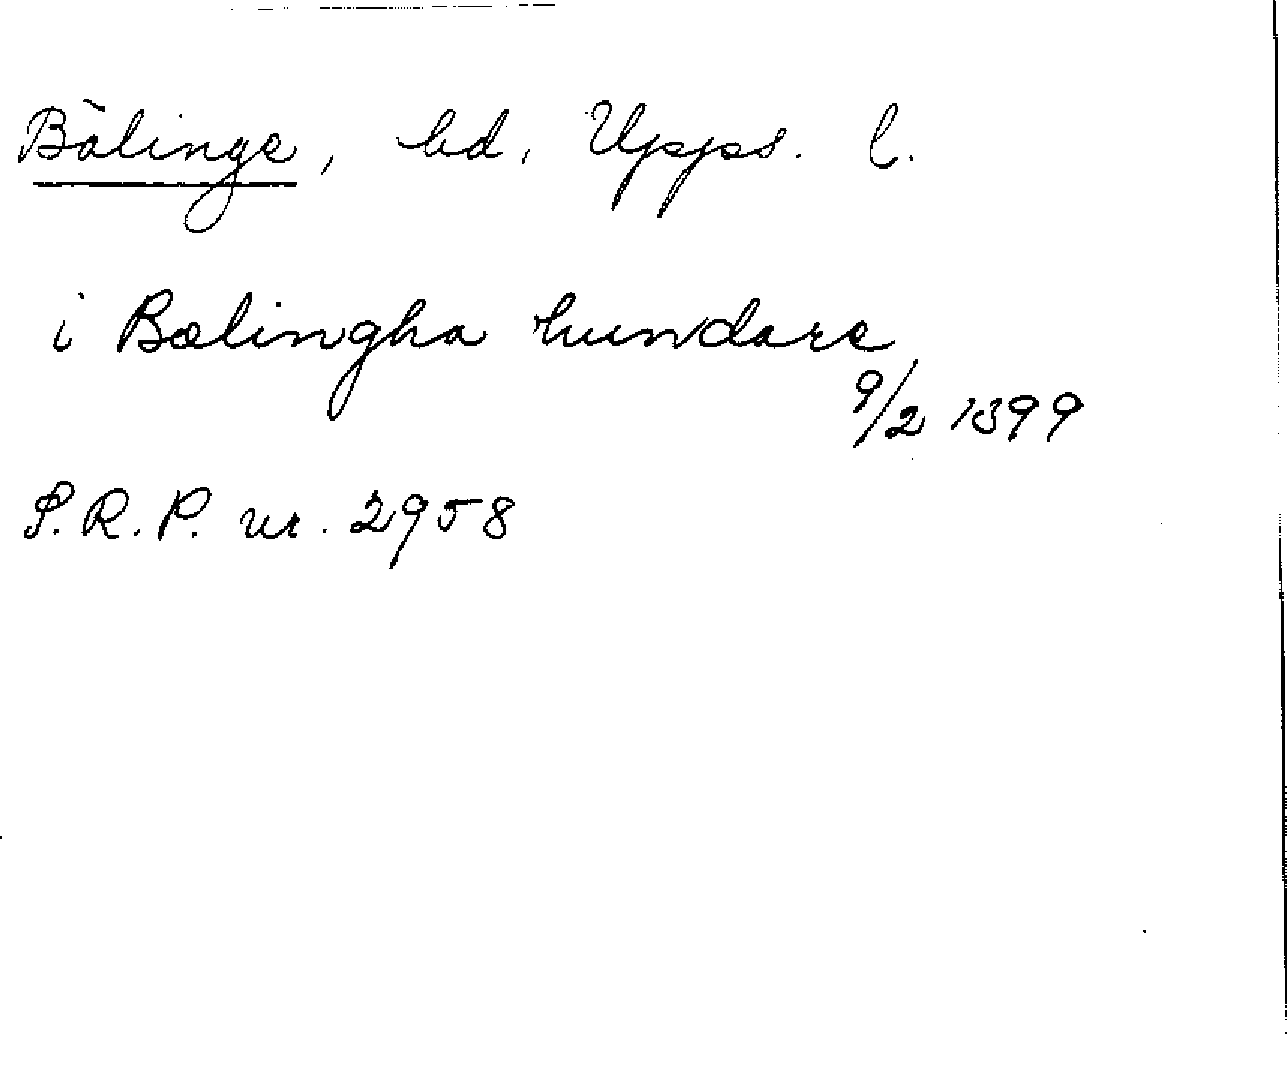 Bälinge, hd. Upps. l.
i Bælingha hundare
9/2 1399
S.R.P. nr. 2958